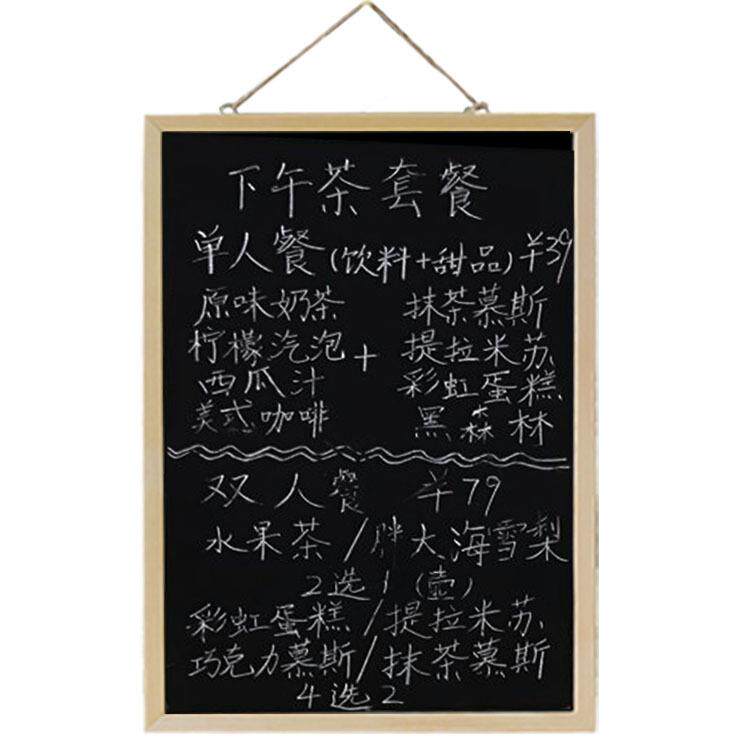 下午茶套餐
单人餐(饮料+甜品)¥39
原味奶茶 抹茶慕斯
柠檬汽泡 + 提拉米苏
西瓜汁 彩虹蛋糕
美式咖啡 黑森林
双人餐 ¥79
水果茶/胖大海雪梨
2选1(壶)
彩虹蛋糕/提拉米苏
巧克力慕斯/抹茶慕斯
4选2